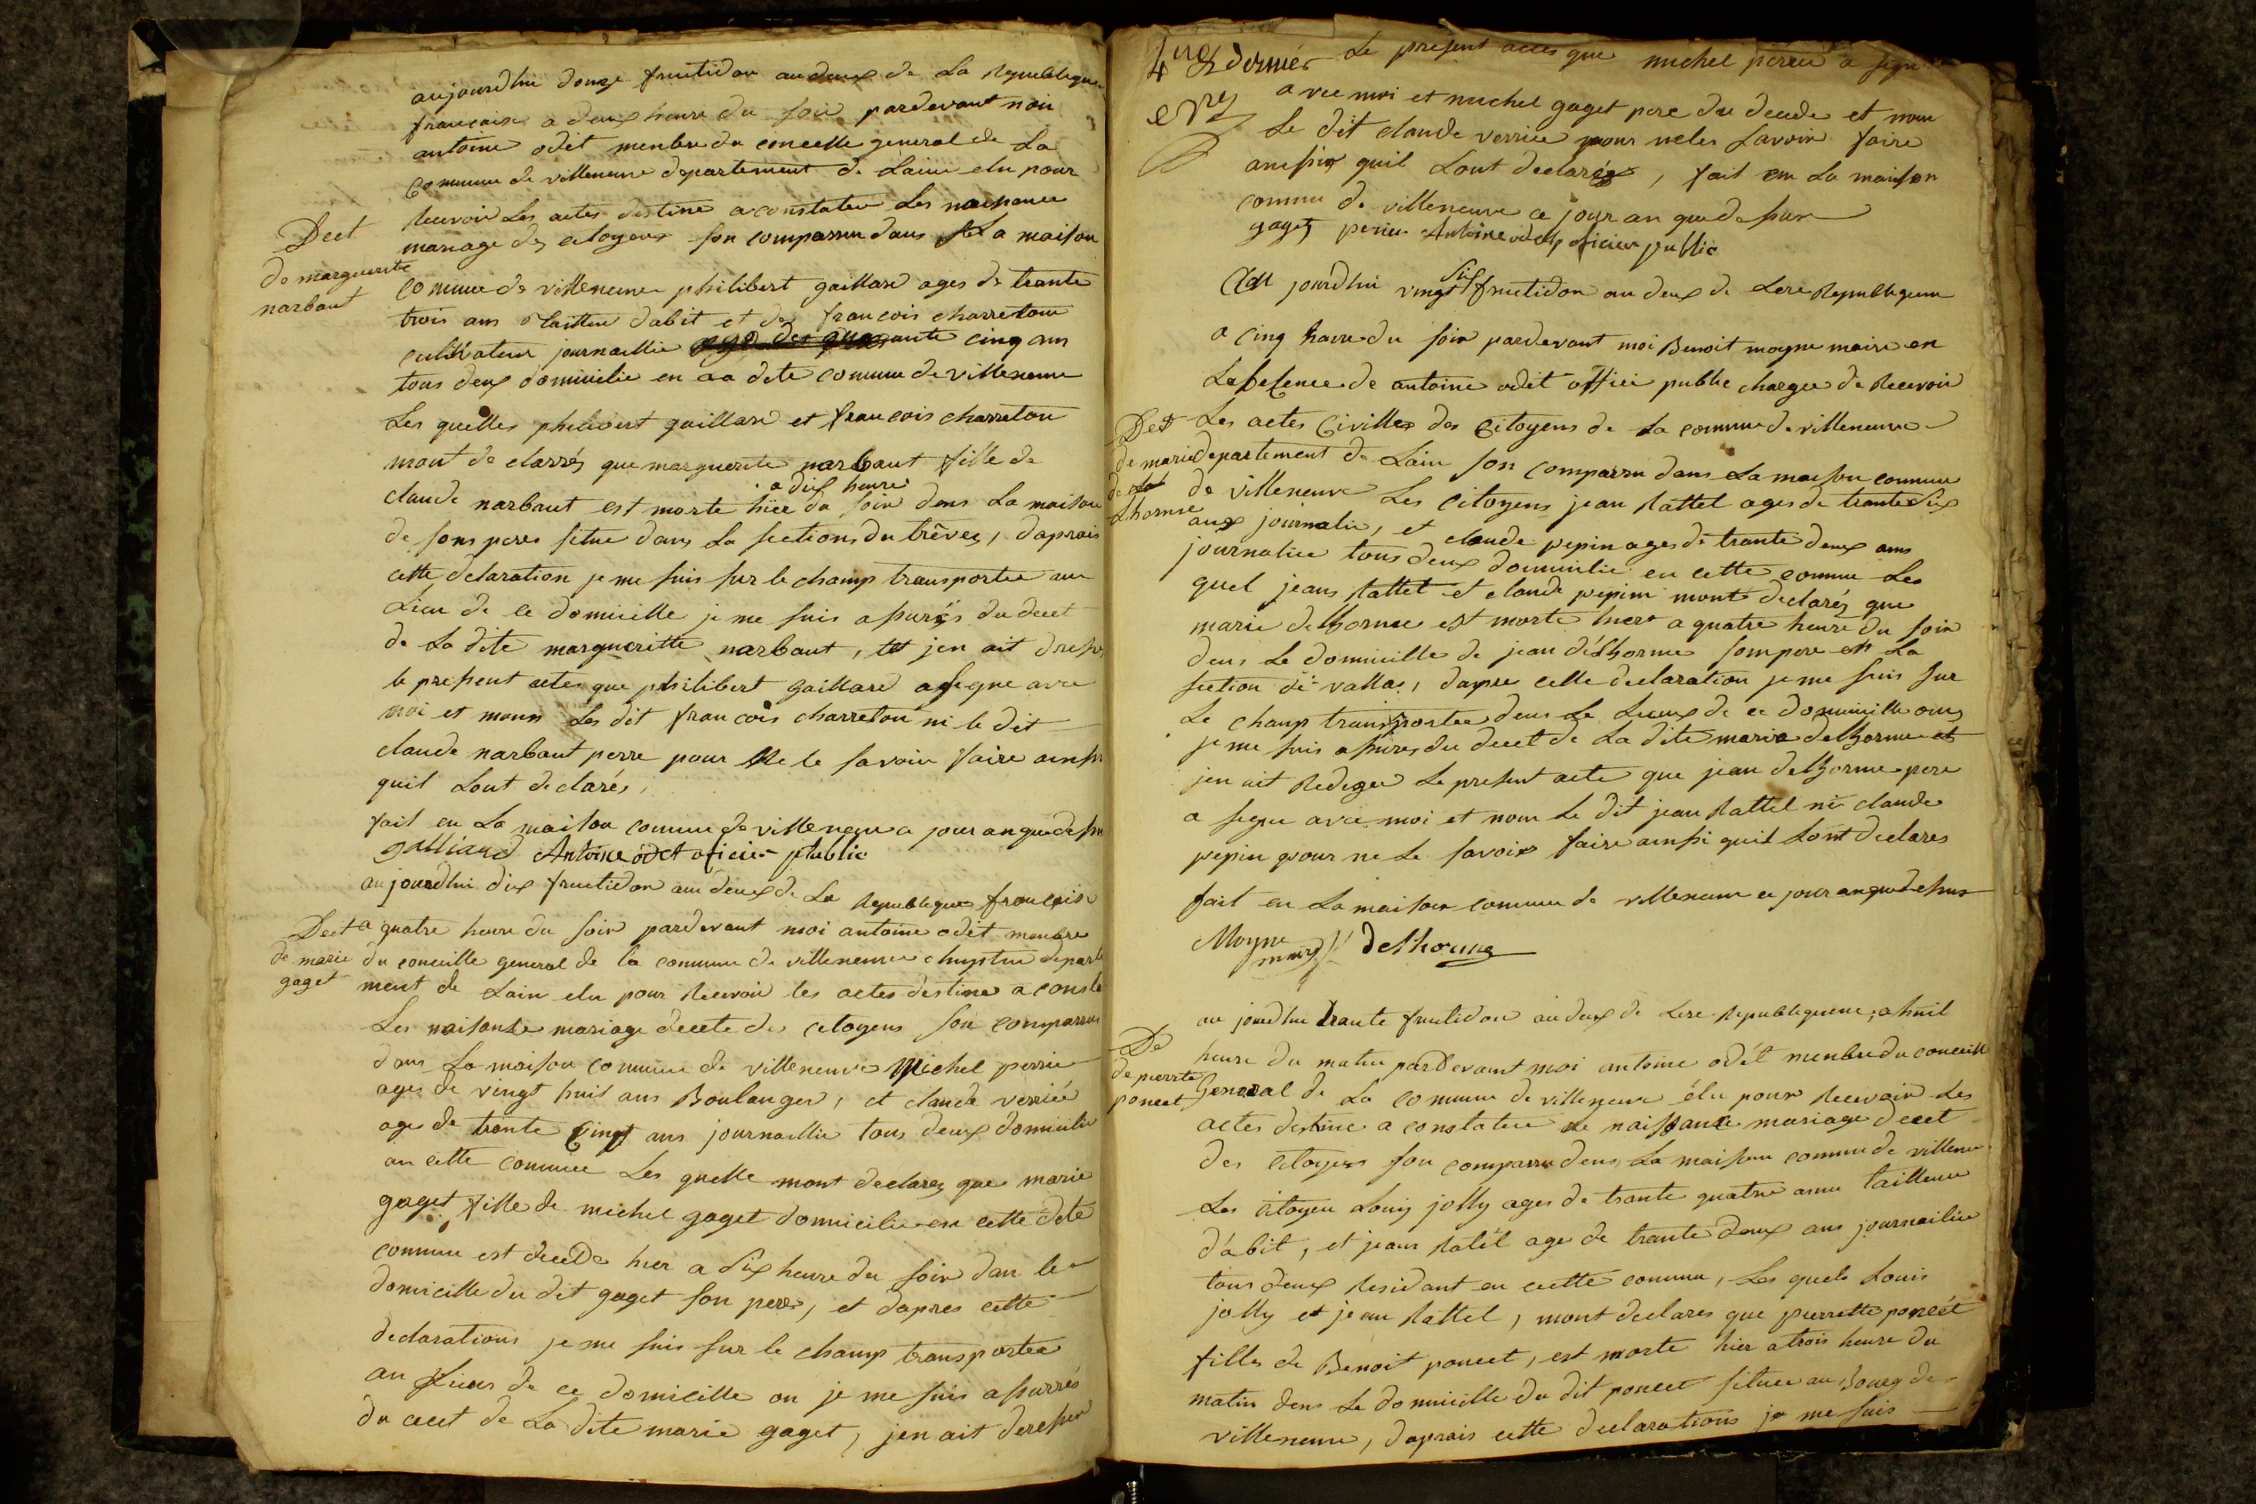 aujourdhui douze fructidor audeux de La Republique
francaise a deux heure du soir pardevant noir
antoine odet menbre du conceille general de La
Commune de villeneuve departement de Lain elu pour
Recevoir Les actes destine a constater Les naissance
Decet
mariage des citoyens son comparru dans La maison
de marguerite
narbaut
Commune de villeneuve philibert gaillard ages de trante
trois ans tailleur dabit et de francois charretou
cultivateur journaillie age des quarante cinq ans
tous deux domicilie en La dete commune de villeneuve
Les quelles philibert gaillard et francois charretou
mont de clarrés que marguerite narbaut fille de
a dix heure
claude narbaut est morte hier du soir dens La maison
de sons pere situe dans La sections du trêves, daprais
cette declaration je me suis sur le champ transportee au
Lieu de ce domicille je me suis assurés du decet
de La dite margueritte narbaut, et jen ait dresse
le pressent actes que philibert gaillard a signe avec
moi et monn Les dit francois charretou ni le dit
claude narbaut perre pour Ne le savoir faire ainssi
quil Lont declarés,
fait en La maison comune de villeneuve a jour an que dessu
galliard Antoine odet oficier publie
aujourdhui dix fructidor au deux de La Republique francaise
Decet
de marie
gaget
a quatre heure du soir pardevant moi antoine odet menbre
du conceille general de la commune de villeneuve departe
ment de Lain elu pour Recevoir les actes destine a consta
Les naisance mariage decete des citoyens son comparru
dans La maison commune de villeneuve Michel perrie
ages de vingt huit ans Boulanger, et claude verrier
age de trante Cinq ans journaillie tous deux domicilie
an cette commune Les quelle mont declarez que marie
gaget fille de michel gaget domicilie en cette dete
commune est decede hier a Six heure du soir dan le
domicille du dit gaget son pere, et dapres cette
declarations je me suis sur le champ transportee
au Lieus de ce domicille ou je me suis assurrés
du decet de La dite marie gaget, jen ait deresser
4 dernier
Le present actes que michel perrie a signe
avec moi et michel gaget pere du decede et nom
Le dit claude verrier pour neles savoir faire
anssin quil Lont declarés, fait en La maison
commu de villeneuve ce jour an que dessur
gaget perier Antoine odet oficier public
Au jourdhui vingt six fructidor an deux de Lere Republiquenne
a cinq heure du soir pardevant moi Benoit moyne maire en
Labsence de antoine odet offici public charger de Recevoir
Decet
de marie
Lhorme
Les actes Civilles des Citoyens de La commune de villeneuve
departement de Lain son comparru dans La maison commune
de villeneuve Les citoyens jean Rattel ages de trante six
ans journalie, et claude pepin ages de trante deux ans
journalie tous deux domicilie en cette commune Les
quel jeans Rattel et claude pepin mont declarés que
marie delhorme est morte hier a quatre heure du soir
dens Le domicille de jean délhorme sompere en La
section de vallas, dapre cette declaration je me suis sur
Le champ transportee dens Le Lieux de ce domicille ou
je me suis assures du decet de La dite marie delhorme et
jen ait Rediger Le present acte que jean delhorme pere
a signe avec moi et nom Le dit jean Rattel ni claude
pepin pour ne Le savoir faire ainssi quil Lont declares
fait en La maison commune de villeneuve ce jour an que dessus
Moyne maire delhorme
au jourdhui trante fructidor an deux de Lere Republiquenne, a huit
De
de pierrete
poncet
heure du matin pardevant moi antoine odét menbre du conceille
General de La commune de villeneuve élu pour Recevoir Les
actes destine a constater de naissance mariage decet
des citoyens son comparru dens La maison commune de villeneu
Les citoyen Louis jolly ages de trante quatre anne tailleur
d'abit, et jeans Ratél age de trante deux ans journailie
tous deux Residant en cette commune, Les quels Louis
jolly et jean Rattel, mont declares que pierrette poncét
filles de Benoit poncet, est morte hier a trois heure du
matin dens Le domicille du dit poncet situee au Bourg de
villeneuve, daprais cette declarations je me suis